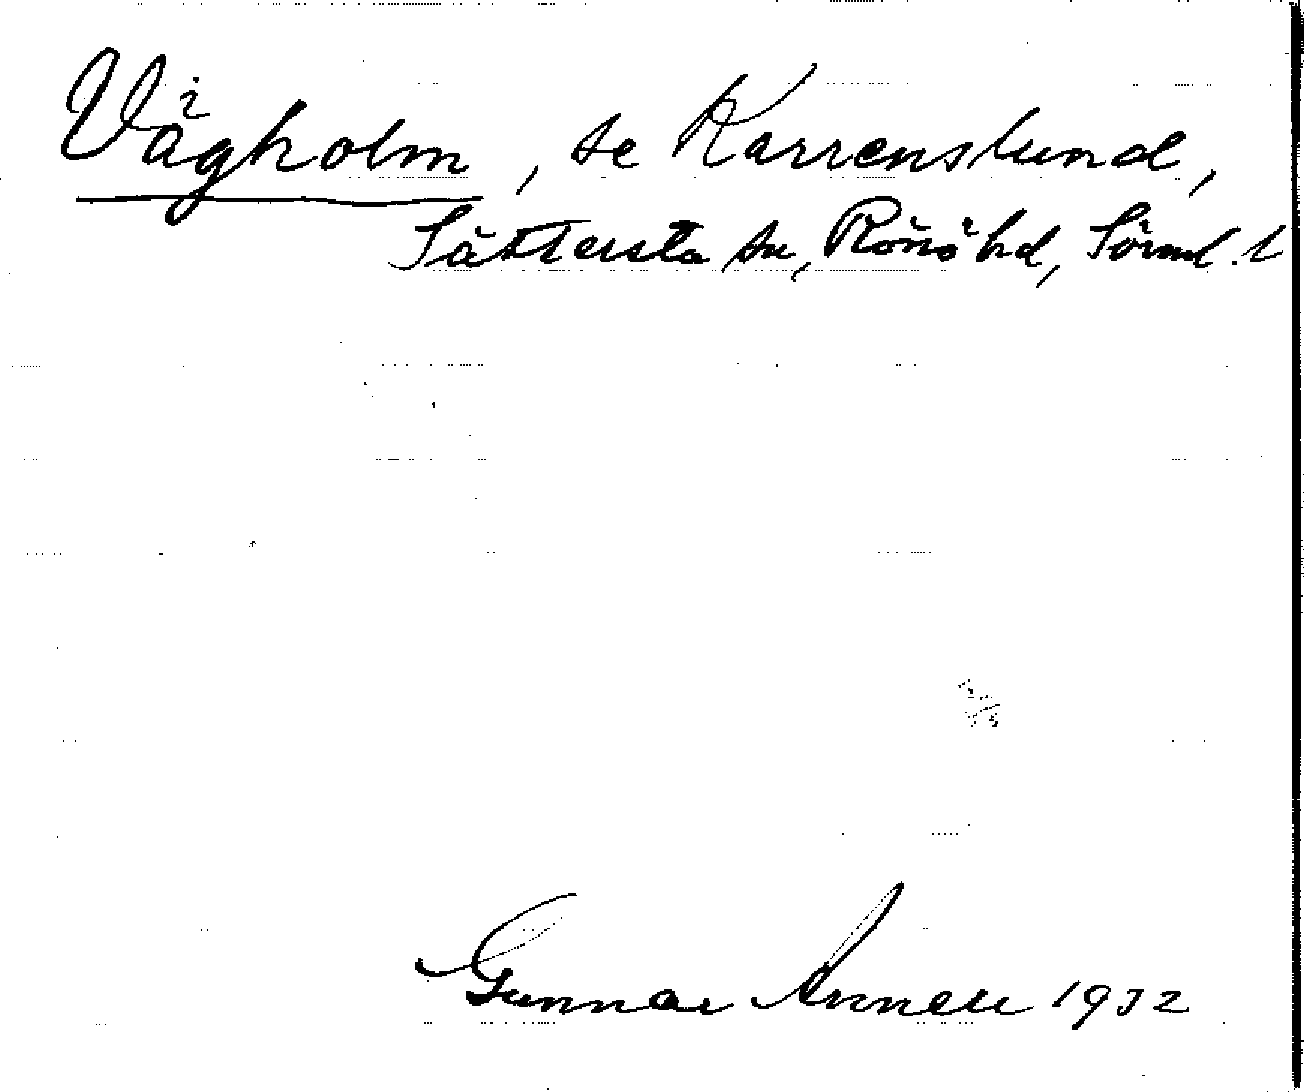 Vågholm, se Karrenslund,
Sättersta sn, Rönö hd, Sörml. l
Gunnar Annell 1932